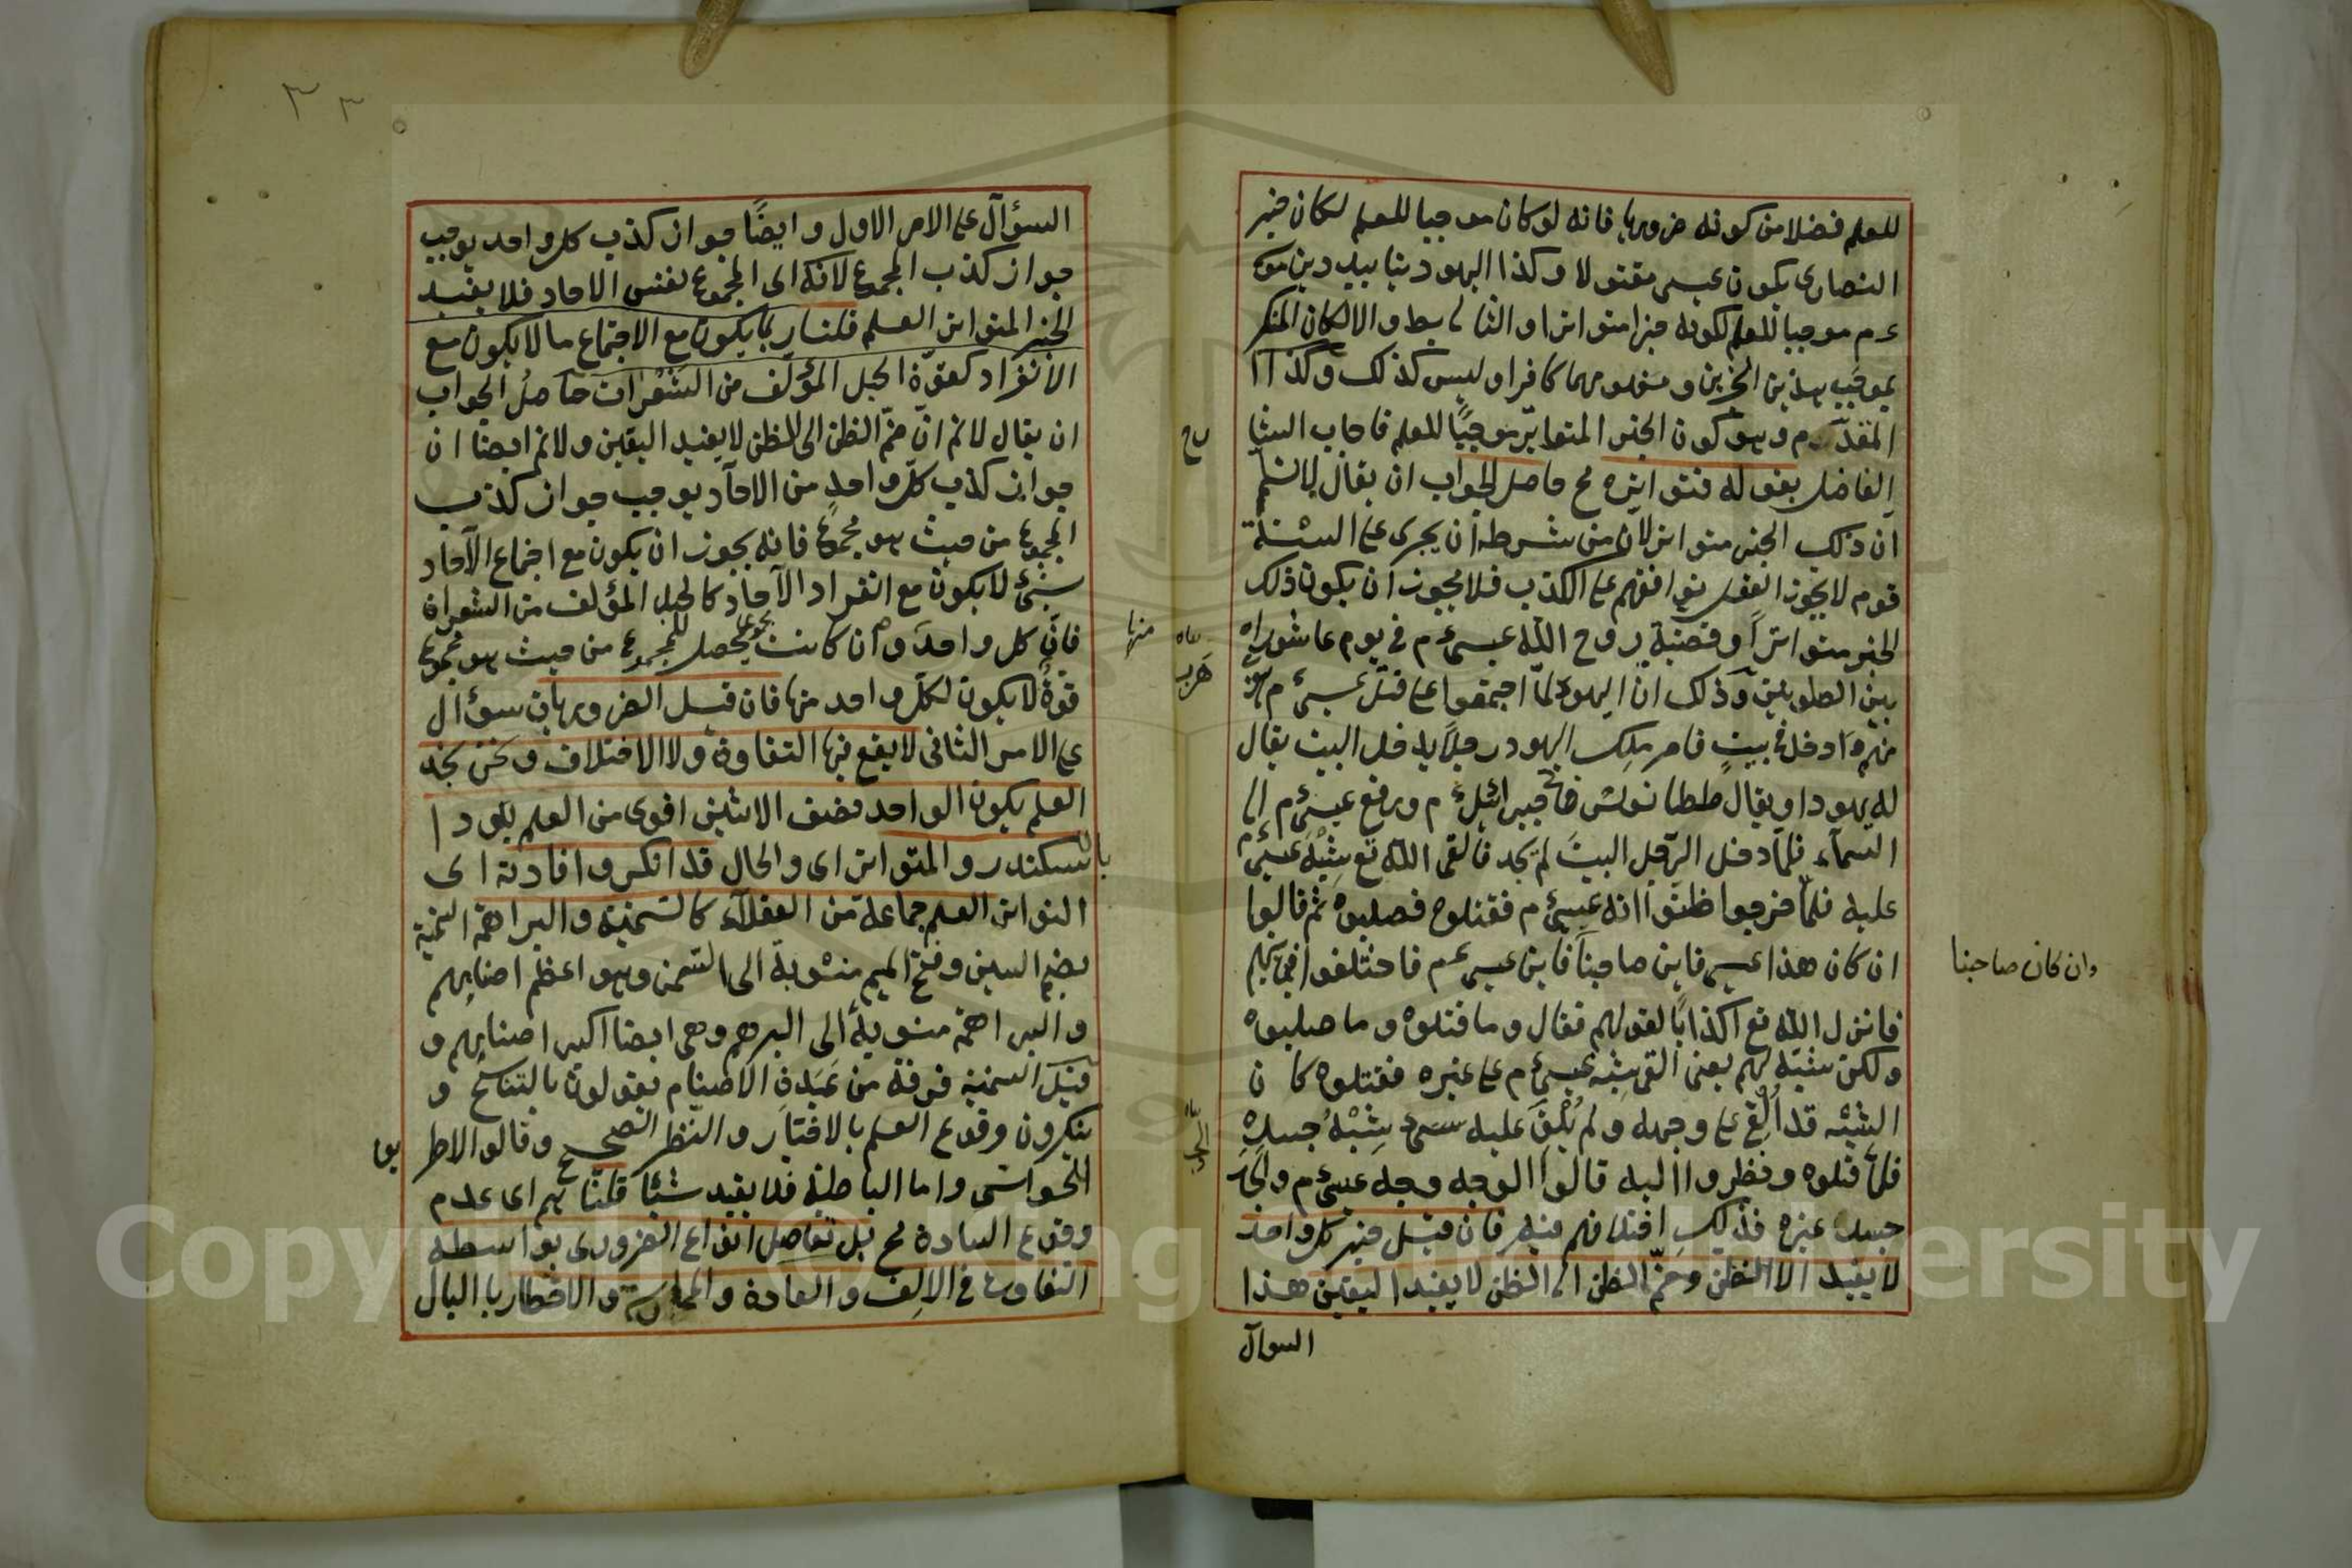 للعلم فضلا من كونه ضروريا فانه لو كان موجبا للعلم لكان خبر
النصارى بكون عيسى مقتولا وكذا اليهود بتأبيد دين موسى
ع م موجبا للعلم لكونه خبرا متواترا والتالى بط والا لكان المنكر
بموجب هذين الخبرين ومفهومهما كافرا وليس كذلك وكذا
المقدم وهو كون الخبر المتواتر موجبا للعلم فاجاب الشا
الفاضل بقوله فتواتره مح حاصل الجواب ان يقال لا نسلم
ان ذلك الخبر متواتر لان من شرطه ان يجرى على السنة
قوم لا يجوز العقل توافقهم على الكذب فلا يجوز ان يكون ذلك
الخبر متواترا وقصة روح الله عيسى ع م فى يوم عاشوراء
بين الصلوتين وذلك ان اليهود لما اجتمعوا على قتل عيسى ع م
منهم وادخل فى بيت فامر ملك اليهود رجلا يدخل البيت يقال
له يهودا ويقال ططيانوش فجاء جبرائيل ع م ورفع عيسى ع م الى
السماء فلما دخل الرجل البيت لم يجد فالقى الله تع شبه عيسى ع م
عليه فلما خرجوا ظنوا انه عيسى ع م فقتلوه فصلبوه ثم قالوا
ان كان هذا عيسى فاين صاحبنا فاين عيسى ع م فاختلفوا فى
فانزل الله تع اكذابا لقولهم فقال وما قتلوه وما صلبوه
ولكن شبه لهم يعنى القى شبه عيسى ع م على غيره فقتلوه كان
الشبه قد القى على وجهه ولم يلق عليه شبه جسده
فلما قتلوه ونظروا اليه قالوا الوجه وجه عيسى ع م والجسد
جسد غيره فذلك اختلافهم فيه فان قيل خبر كل واحد
لا يفيد الا الظن وضم الظن الى الظن لا يفيد اليقين هذا
السوال
وان كان صاحبنا
هرب
السؤال على الامر الاول وايضا جواز كذب كل واحد يوجب
جواز كذب المجموع لانه اى المجموع نفس الاحاد فلا يفيد
الخبر المتواتر العلم قلنا ربما يكون مع الاجتماع ما لا يكون مع
الانفراد كقوة الحبل المؤلف من الشعرات حاصل الجواب
ان يقال لا نم ان ضم الظن الى الظن لا يفيد اليقين ولا نم ايضا ان
جواز كذب كل واحد من الآحاد يوجب جواز كذب
المجموع من حيث هو مجموع فانه يجوز ان يكون مع اجتماع الآحاد
شئ لا يكون مع انفراد الآحاد كالحبل المؤلف من الشعرات
فان كل واحد وان كانت يحصل للمجموع من حيث هو مجموع
منها
قوة لا يكون لكل واحد منها فان قيل الضروريات سؤال
على الامر الثانى لا يقع فيها التفاوت ولا الاختلاف ونحن نجد
العلم بكون الواحد نصف الاثنين اقوى من العلم بوجود ا
سكندر والمتواتر اى والحال قد انكر وافادته اى
التواتر العلم جماعة من العقلاء كالسمنية والبراهمة السمنية
بضم السين وفتح الميم منسوبة الى السمن وهو اعظم اصنامهم
والبراهمة منسوبة الى البرهم وهى ايضا اكبر اصنامهم و
قيل السمنية فرقة من عبدة الاصنام يقولون بالتناسخ و
ينكرون وقوع العلم بالاخبار والنظر الصحيح وقالوا لا طر
للحواس واما الباطنة فلا يفيد شيئا قلنا هم اى عدم
وقوع المادة مح بل تفاصل انواع الضرورى بواسطة
التفاوت فى الالف والعادة والممارسة والاخطار بالبال